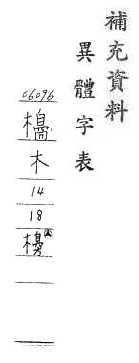 補充資料
異體字表
06096
木
14
18